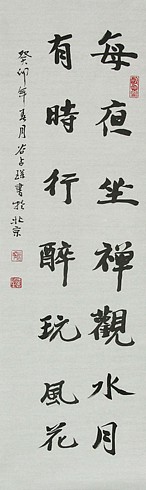 每夜坐禪觀水月
有時行醉玩風花
癸卯年春月谷占祥書於北京